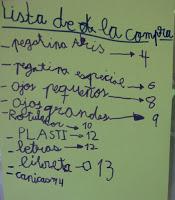 Lista de la compra
- pegatina Aris → 4
- pegatina especial → 6
- ojos pequeños → 8
- Ojos grandes → 9
Rotulador → 10
- PLASTI → 12
- letras → 12
- libreta → 13
- canicas → 14